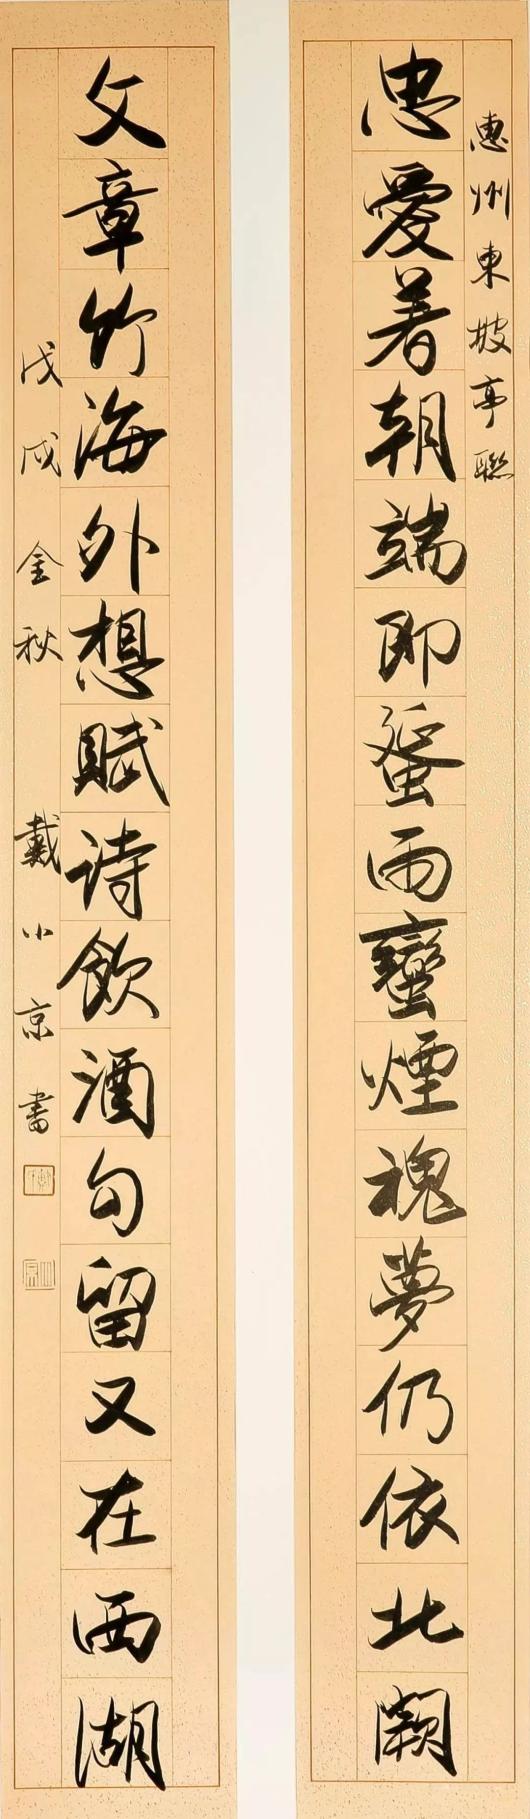 惠州東坡亭聯
忠愛着朝端即蜑雨蠻煙魂夢仍依北闕
文章行海外想賦詩飲酒句留又在西湖
戊戌金秋 戴小京書